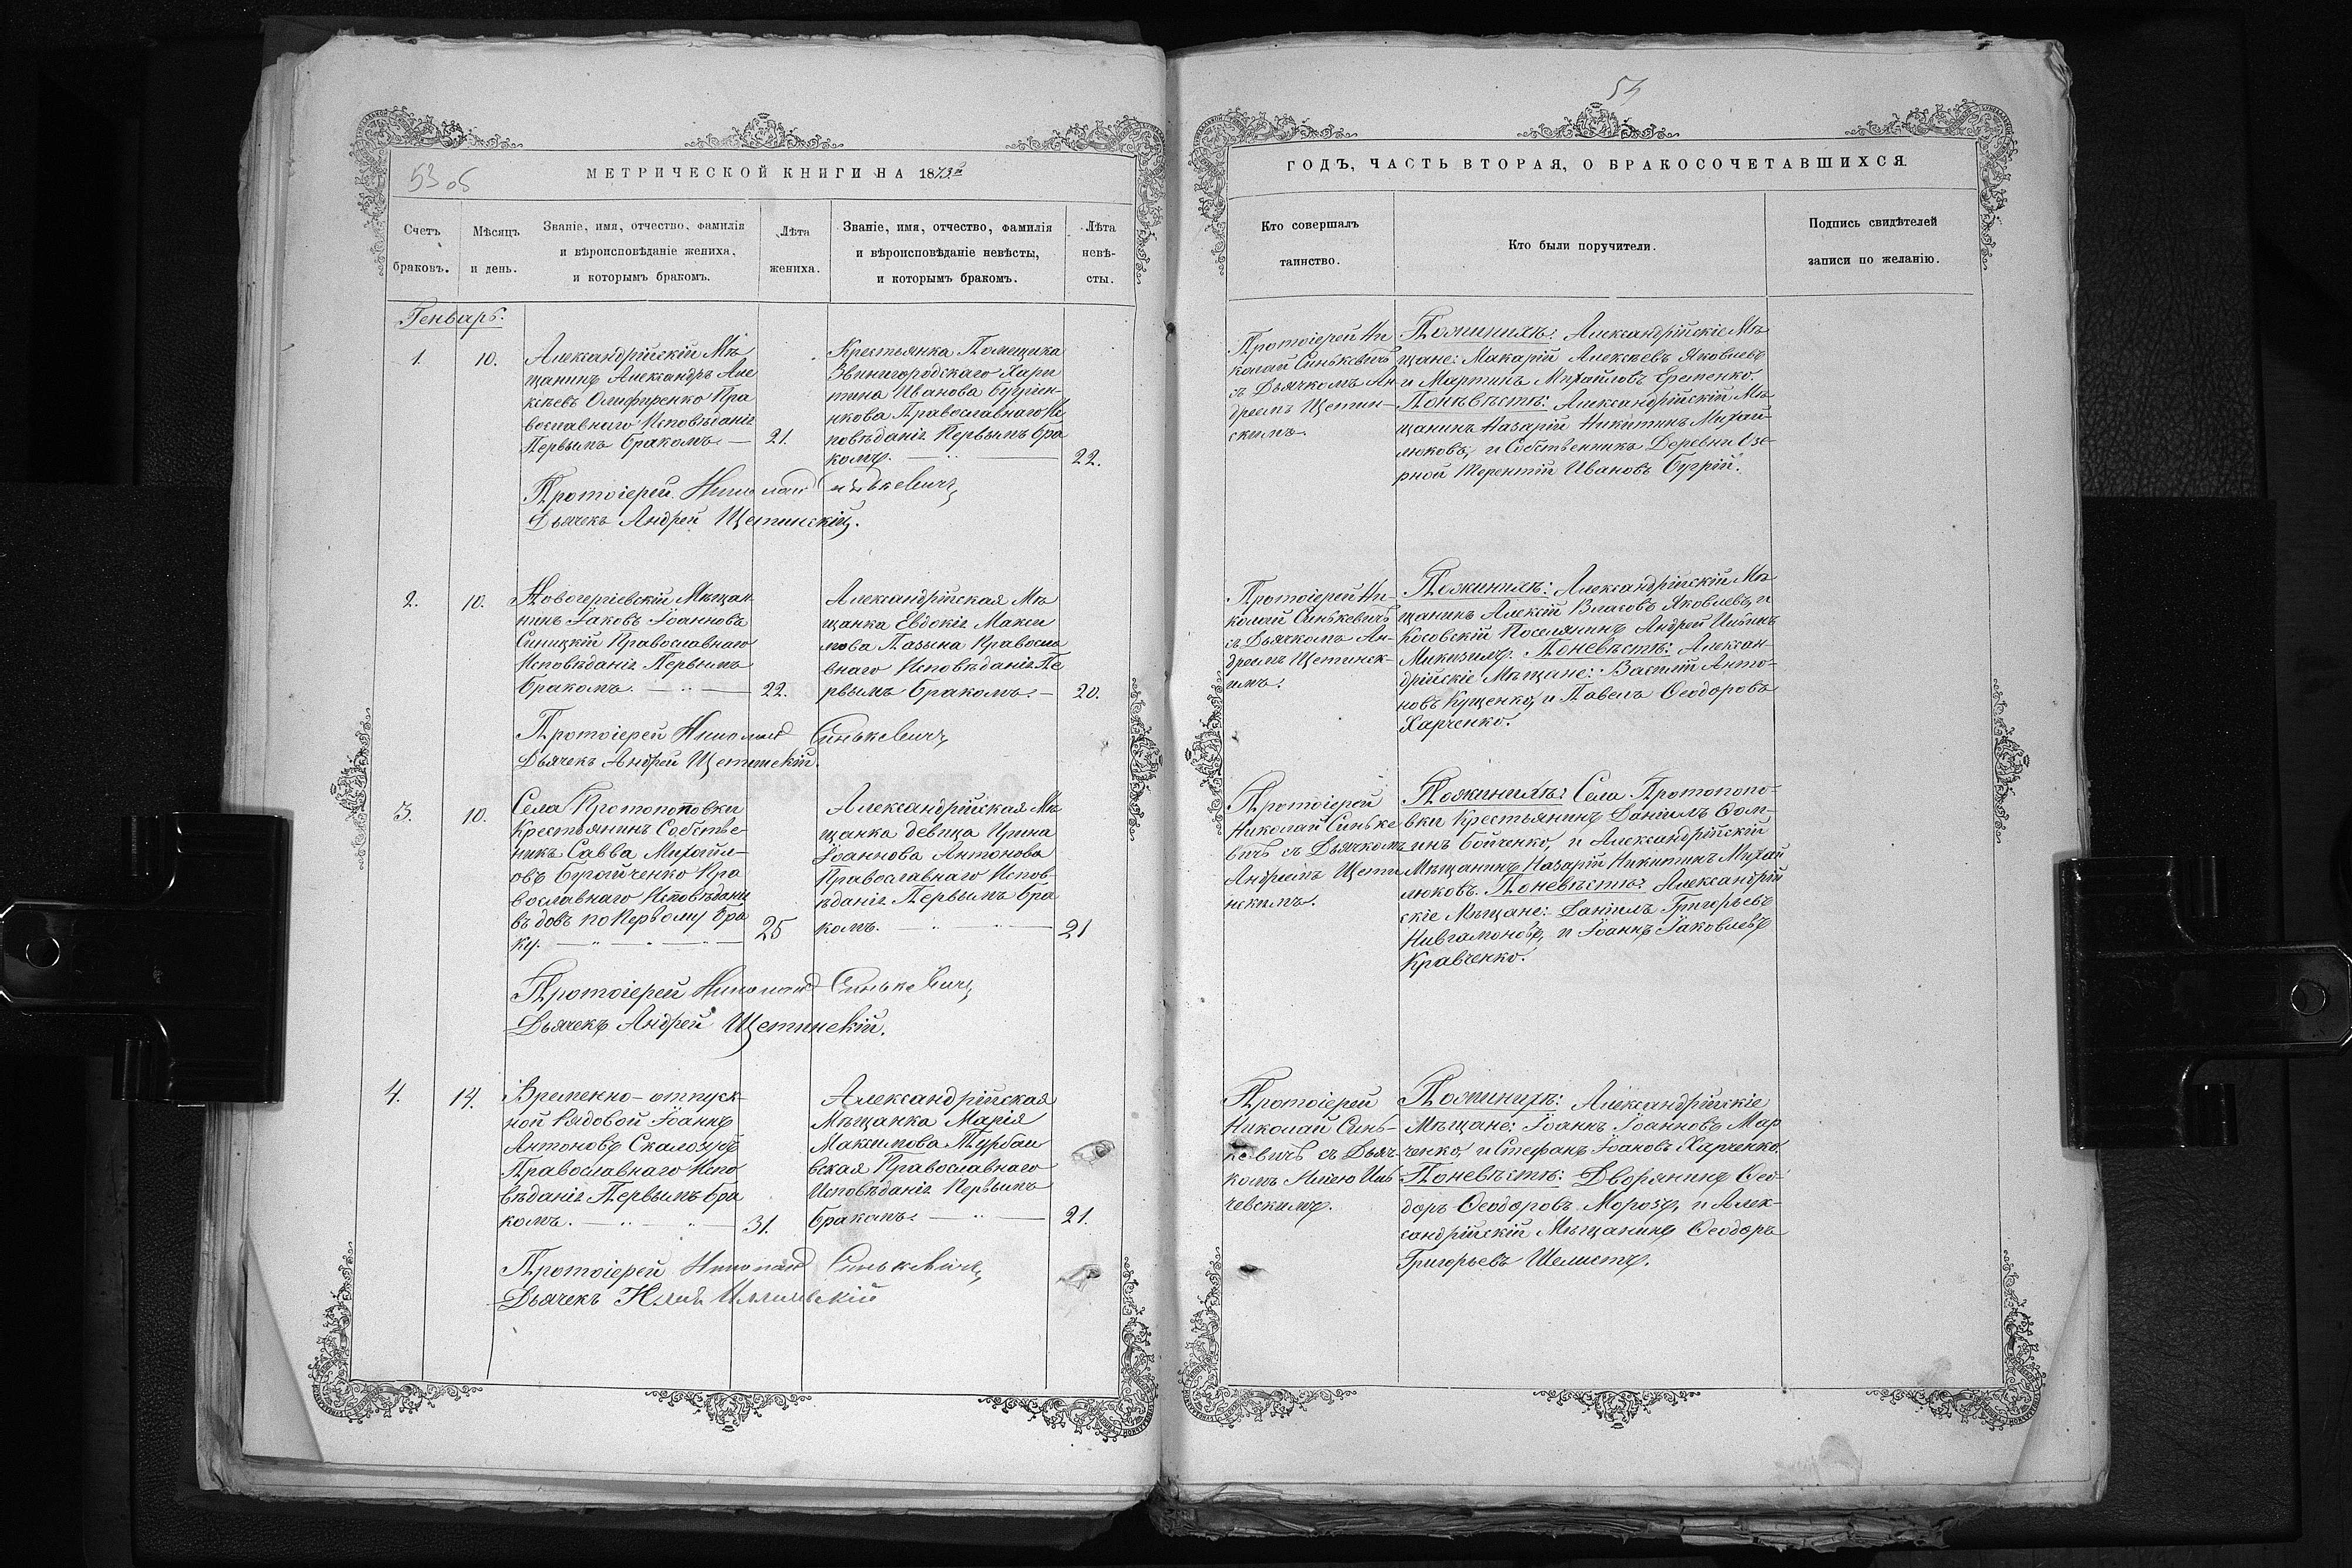 53 об
МЕТРИЧЕСКОЙ КНИГИ НА 1873й
Счетъ браковъ.
Мѣсяцъ и день.
Званіе, имя, отчество, фамилія
и вѣроисповѣданіе жениха,
и которымъ бракомъ.
Лѣта
жениха.
Званіе, имя, отчество, фамилія
и вѣроисповѣданіе невѣсты,
и которымъ бракомъ.
Лѣта
невѣ-
сты.
Генварь.
1.
10.
Александрійскій Мѣ
щанинъ Александръ Але
ксѣевъ Олифиренко Пра
вославнаго Исповѣданія
Первымъ бракомъ. —
21.
Крестьянка Помещика
Звинигородскаго Хари
тина Иванова
Православнаго Ис
повѣданія Первымъ бра
комъ.
22.
Протоіерей Николай Синькевичъ
Дьячекъ Андрей Щетинскій.
2.
10.
Новогеоргіевскій Мѣщан
нинъ Іаковъ Іоанновъ
Синицкій Православнаго
Исповѣданія Первымъ
бракомъ.
22.
Александрійская Мѣ
щанка Евдокія Макси
мова Православ
наго Исповѣданія Пе
рвымъ бракомъ. —
20.
Протоіерей Николай Синькевичъ
Дьячекъ Андрей Щетинскій.
3.
10.
Села Протопоповки
Крестьянинъ Собстве-
никъ Савва Михайл-
овъ Пра
вославнаго Исповѣданія
вдовъ по Первому бра
ку.
25
Александрійская Мѣ
щанка девица Ирина
Іоаннова Антонова
Православнаго Испов-
ѣданія Первымъ бра
комъ.
21
Протоіерей Николай Синькевичъ
Дьячекъ Андрей Щетинскій.
4.
14.
Временно-отпуск-
ной Рядовой Іоаннъ
Антоновъ Скалозубъ
Православнаго Испо
вѣданія Первымъ бра
комъ.
31.
Александрійская
Мѣщанка Марія
Максимова Турбаи
вская Православнаго
Исповѣданія Первымъ
бракомъ.
21.
Протоіерей Николай Синькевичъ
Дьячекъ
54
ГОДЪ, ЧАСТЬ ВТОРАЯ, О БРАКОСОЧЕТАВШИХСЯ.
Кто совершалъ
таинство.
Кто были поручители.
Подпись свидѣтелей
записи по желанію.
Протоіерей Ни
колай Синькевичъ
съ Дьячкомъ Ан-
дреемъ Щетин-
скимъ.
Поженихъ: Александрійскіе Мѣ
щане: Макарій Алексѣевъ Яковлевъ
и Мартинъ Михайловъ Еременко.
Поневѣстѣ: Александрійскій Мѣ
щанинъ Назарій Никитинъ Михай-
люковъ, и Собственникъ Деревни Озе-
рной Терентій Ивановъ
Протоіерей Ни-
колай Синькевичъ
съ Дьячкомъ Ан-
дреемъ Щетинск-
имъ.
Поженихъ: Александрійскій Мѣ
щанинъ Алексій Власовъ Яковлевъ, и
Косовскій Поселянинъ Андрей Ильинъ
Поневѣстѣ: Алексан-
дрійскіе Мѣщане: Василій Анто-
новъ Куценко, и Павелъ Ѳеодоровъ
Харченко.
Протоіерей
Николай Синьке
вичъ съ Дьячкомъ
Андреемъ Щети
нскимъ.
Поженихѣ: Села Протопопо-
вки Крестьянинъ Даніилъ Ѳом-
инъ Бойченко, и Александрійскій
Мѣщанинъ Назарій Никитинъ Михай
люковъ. Поневѣстѣ: Александрій
скіе Мѣщане: Даніилъ Григорьевъ
и Іоаннъ Іаковлевъ
Кравченко.
Протоіерей
Николай Синь-
кевичъ съ Дьяч-
комъ
Поженихъ: Александрійскіе
Мѣщане: Іоаннъ Іоанновъ Мар
ченко, и Стефанъ Іоановъ Харченко.
Поневѣстѣ: Дворянинъ Ѳео-
доръ Ѳеодоровъ Морозъ, и Алек-
сандрійскій Мѣщанинъ Ѳеодоръ
Григорьевъ Шелестъ.